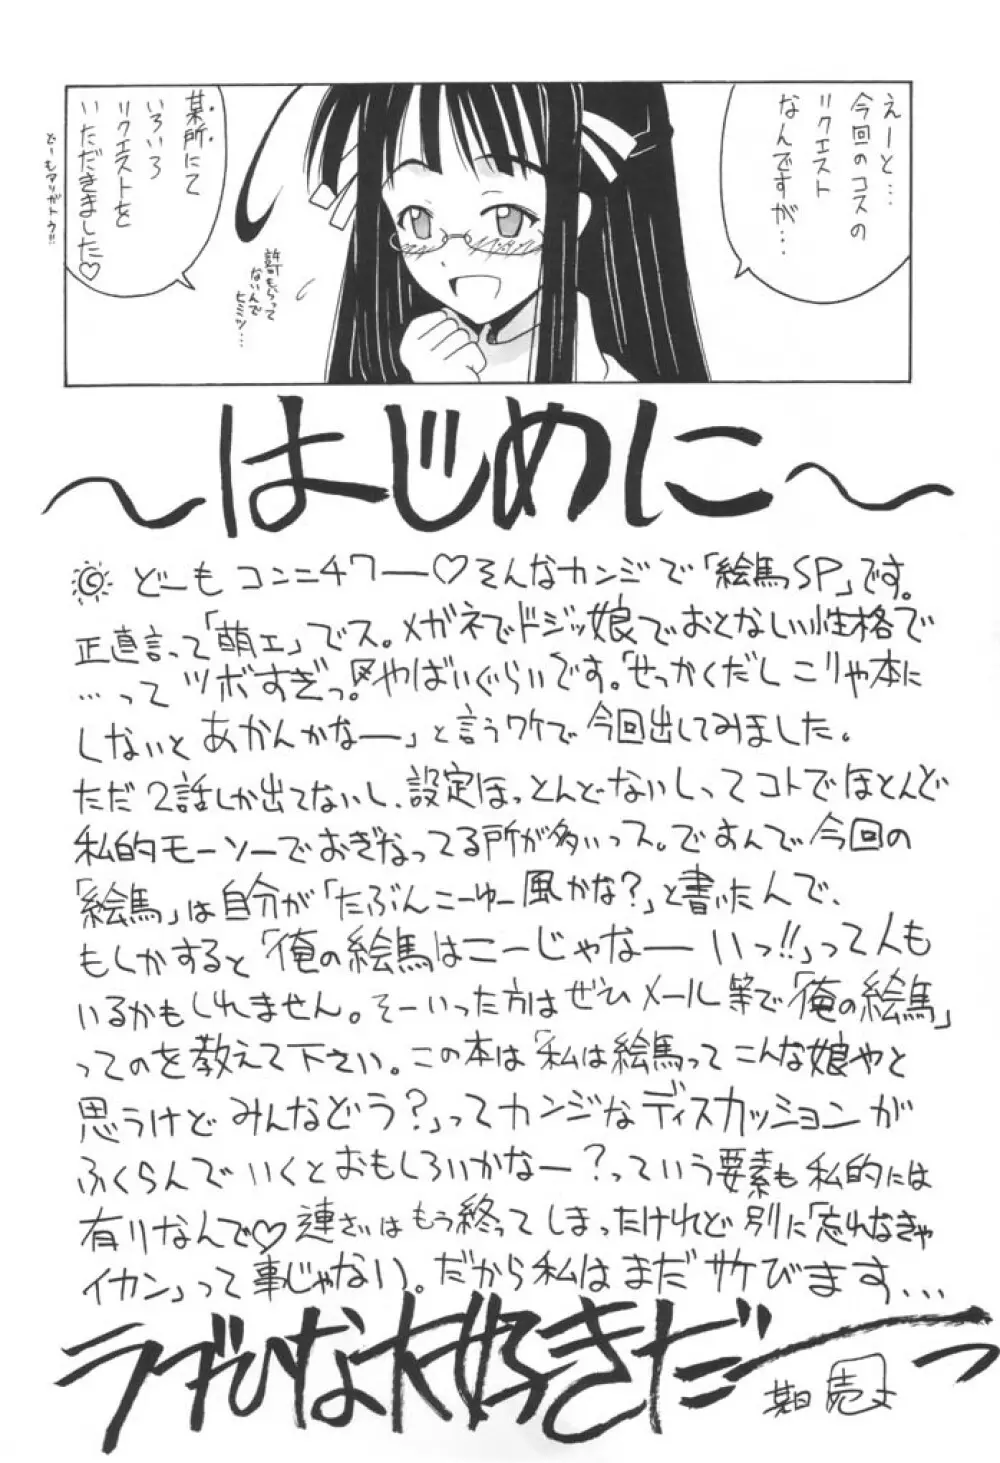 えーと…
今回のコスの
リクエスト
なんですが…
某所にて
いろいろ
リクエストを
いただきました♡
どーもアリガトウ!!
許可もらって
ないんで
ヒミツ…
～はじめに～
どーも コンニチワー♡そんなカンジで「絵馬SP」です。
正直言って「萌エ」でス。メガネでドジッ娘でおとなしい性格で
…って ツボすぎっ。やばいぐらいです。「せっかくだし こりゃ本に
しないと あかんかなー」と言うワケで 今回出してみました。
ただ 2話しか出てないし、設定ほっとんどないしってコトでほとんど
私的モーソーでおぎなってる所が多いっス。ですんで 今回の
「絵馬」は自分が「たぶんこーゆー風かな?」と書いたんで、
もしかすると「俺の絵馬はこーじゃなー いっ!!」って人も
いるかもしれません。そーいった方はぜひメール等で「俺の絵馬」
ってのを教えて下さい。この本は「私は絵馬って こんな娘やと
思うけど みんなどう?」ってカンジなディスカッションが
ふくらんでいくとおもしろいかなー?っていう要素も私的には
有りなんで♡ 連ざいはもう終ってしまったけれど 別に「忘れなきゃ
イカン」って事じゃない。だから私は まだ サケびます…
ラブひな大好きだーーっ